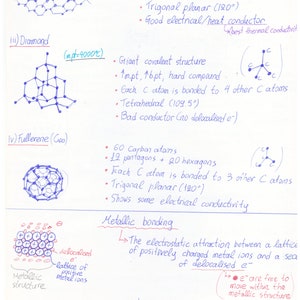 • Trigonal planar (120°)
• Good electrical/heat conductor
iii) Diamond
(mpt>4000°C)
• Giant covalent structure
• ↑mpt, ↑bpt, hard compound
• Each C atom is bonded to 4 other C atoms
• Tetrahedral (109.5°)
• Bad conductor (no delocalised e⁻)
iv) Fullerene (C60)
• 60 Carbon atoms
• 12 pentagons + 20 hexagons
• Each C atom is bonded to 3 other C atoms
• Trigonal planar (120°)
• Shows some electrical conductivity
Metallic bonding
↳ The electrostatic attraction between a lattice
of positively charged metal ions and a sea
of delocalised e⁻
delocalised
e⁻
lattice of
positive
metal ions
metallic
structure
e⁻ are free to
move within the
metallic structure